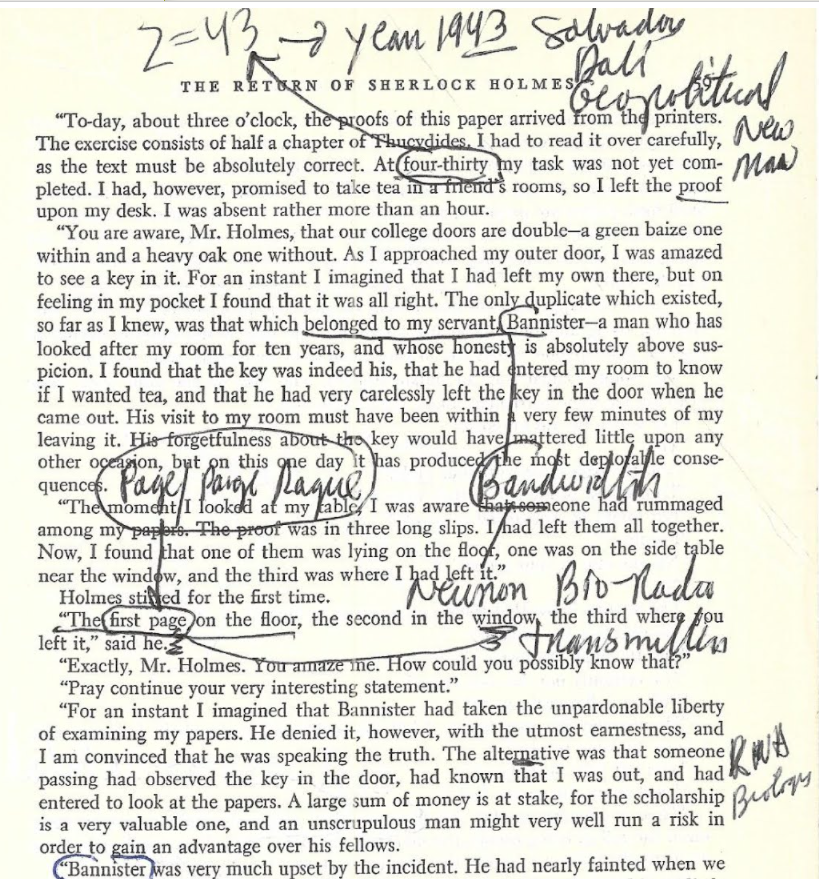 2=43 → year 1943 Salvador
Dali
Geopolitical
New
Man
THE RETURN OF SHERLOCK HOLMES 59
“To-day, about three o’clock, the proofs of this paper arrived from the printers.
The exercise consists of half a chapter of Thucydides. I had to read it over carefully,
as the text must be absolutely correct. At four-thirty my task was not yet com-
pleted. I had, however, promised to take tea in a friend’s rooms, so I left the proof
upon my desk. I was absent rather more than an hour.
“You are aware, Mr. Holmes, that our college doors are double—a green baize one
within and a heavy oak one without. As I approached my outer door, I was amazed
to see a key in it. For an instant I imagined that I had left my own there, but on
feeling in my pocket I found that it was all right. The only duplicate which existed,
so far as I knew, was that which belonged to my servant, Bannister—a man who has
looked after my room for ten years, and whose honesty is absolutely above sus-
picion. I found that the key was indeed his, that he had entered my room to know
if I wanted tea, and that he had very carelessly left the key in the door when he
came out. His visit to my room must have been within a very few minutes of my
leaving it. His forgetfulness about the key would have mattered little upon any
other occasion, but on this one day it has produced the most deplorable conse-
quences.
Page/Paige Raque
Bandwidth
“The moment I looked at my table, I was aware that someone had rummaged
among my papers. The proof was in three long slips. I had left them all together.
Now, I found that one of them was lying on the floor, one was on the side table
near the window, and the third was where I had left it.”
Neuron Bio-Radio
transmitters
Holmes stirred for the first time.
“The first page on the floor, the second in the window, the third where you
left it,” said he.
“Exactly, Mr. Holmes. You amaze me. How could you possibly know that?”
“Pray continue your very interesting statement.”
“For an instant I imagined that Bannister had taken the unpardonable liberty
of examining my papers. He denied it, however, with the utmost earnestness, and
I am convinced that he was speaking the truth. The alternative was that someone
passing had observed the key in the door, had known that I was out, and had
entered to look at the papers. A large sum of money is at stake, for the scholarship
is a very valuable one, and an unscrupulous man might very well run a risk in
order to gain an advantage over his fellows.
RNA
Biology
“Bannister was very much upset by the incident. He had nearly fainted when we